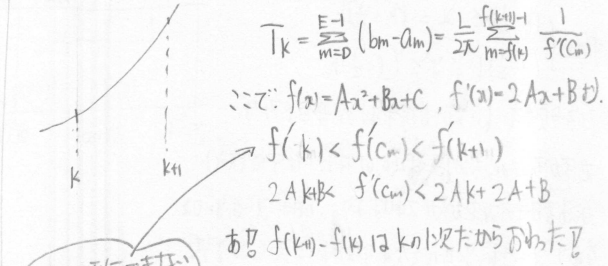 T_k = Σ_{m=D}^{E-1} (b_m - a_m) = L/2π Σ_{m=f(k)}^{f(k+1)-1} 1/f'(C_m)
ここで、f(x)=Ax²+Bx+C, f'(x)=2Ax+Bより.
f'(k) < f'(C_m) < f'(k+1)
2Ak+B < f'(C_m) < 2Ak+2A+B
あ!! f(k+1)-f(k) は kの1次だからおわった!!
k
k+1
できない